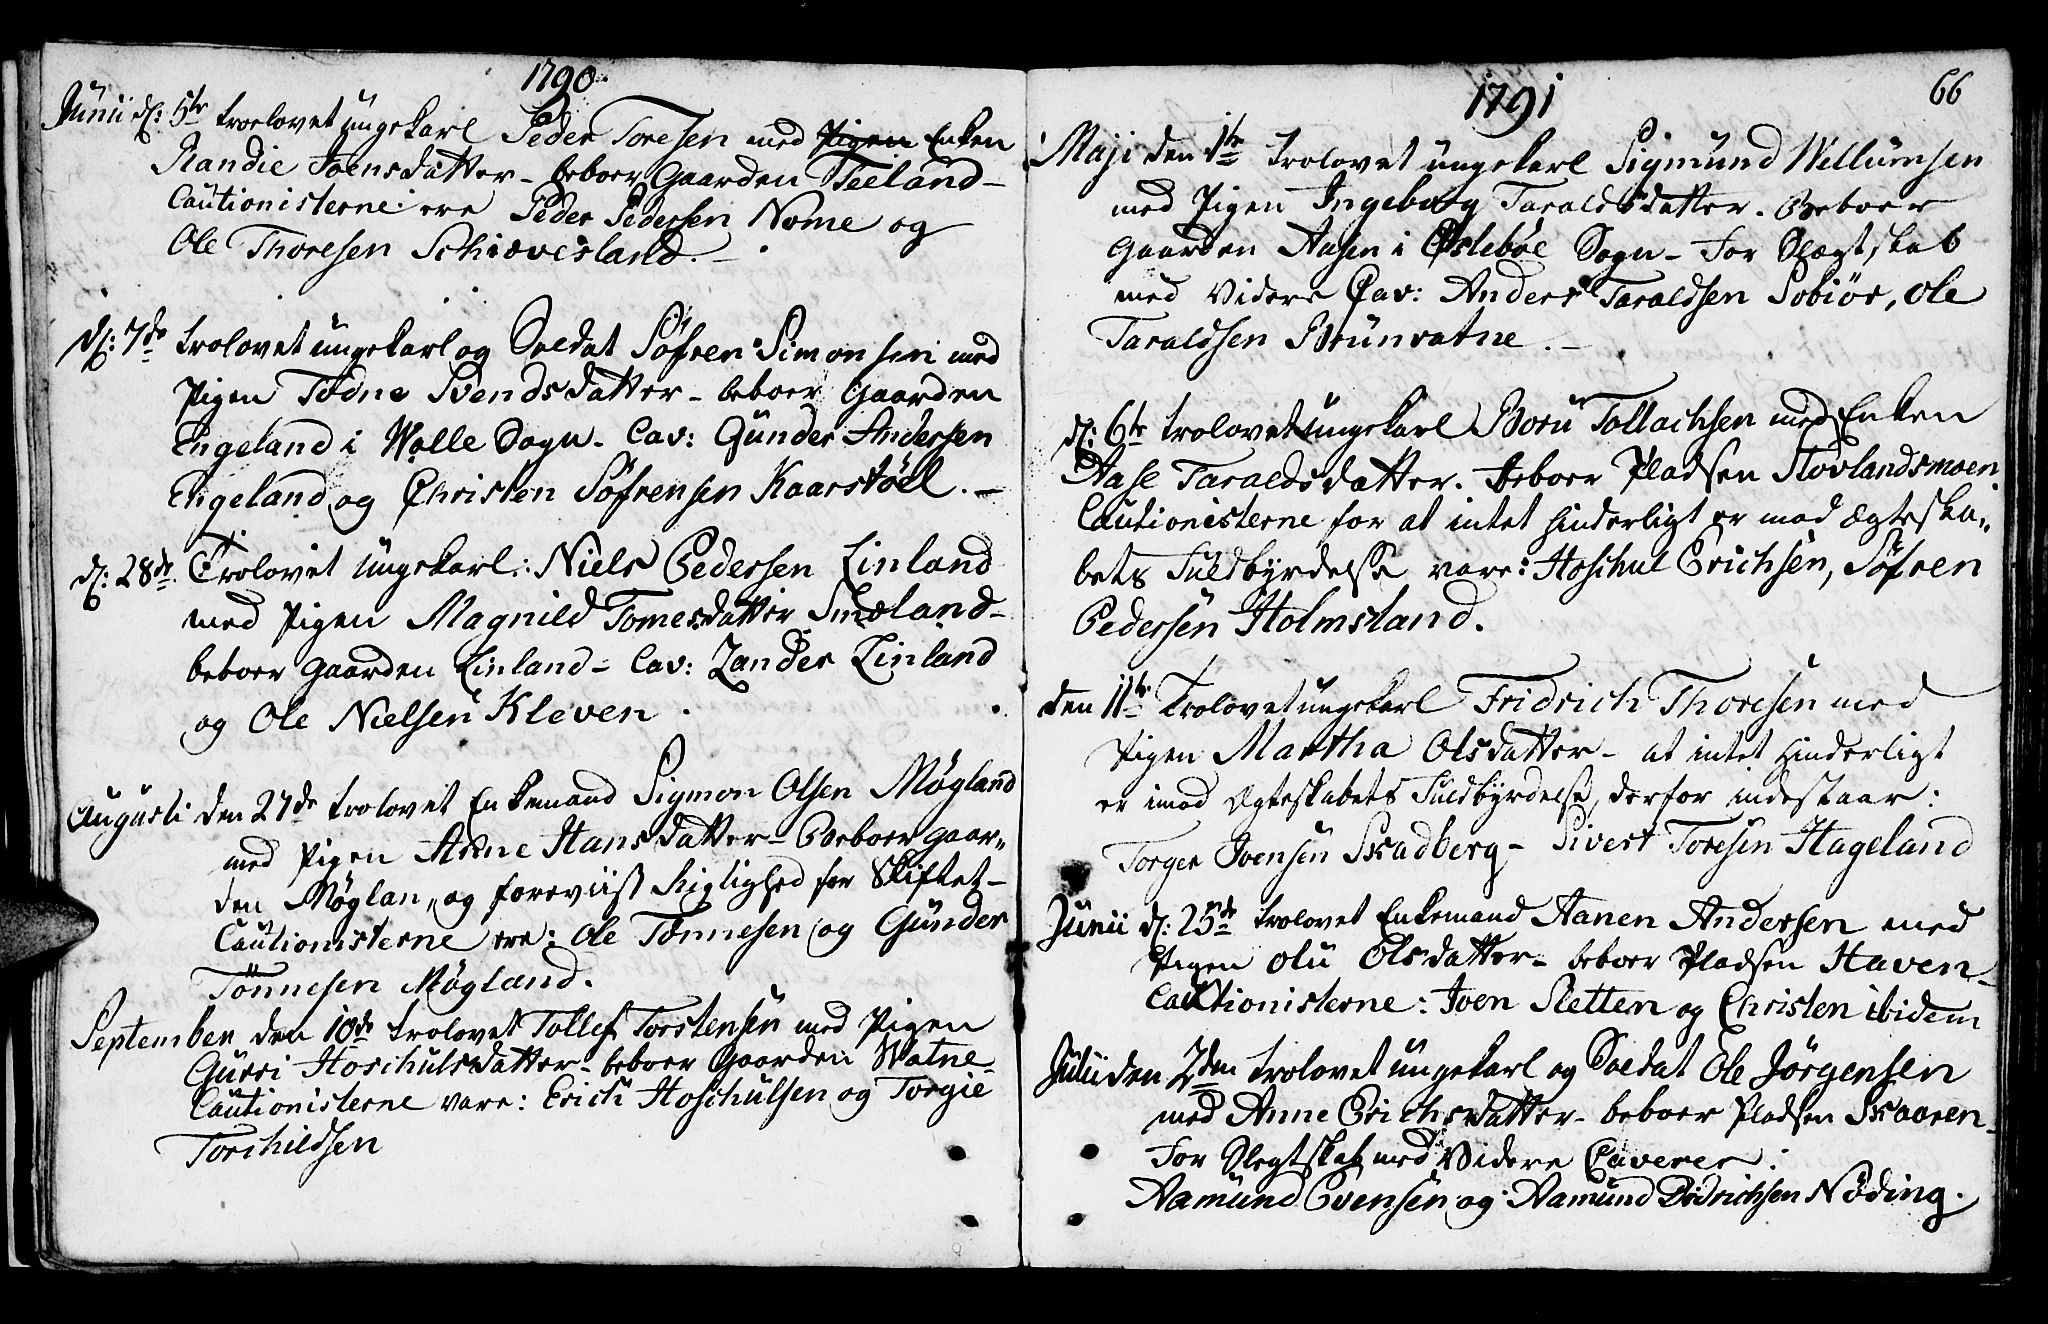 1790.
Junii d: 5te troelovet ungekarl Peder Toresen med Pigen Enken
Randie Joensdatter - beboer Gaarden Teeland -
Cautionisterne ere Peder Pedersen Nome og
Ole Thoresen Schiævesland. -
d: 7de trolovet ungekarl og Soldat Søfren Simonsen med
Pigen Todne Svendsdatter - beboer Gaarden
Engeland i Walle Sogn. Cav: Gunder Andersen
Engeland og Christen Søfrensen Kaarstøel. -
d: 28de Trolovet ungekarl: Niels Pedersen Linland
med Pigen Magnild Tomesdatter Smæland -
beboer Gaarden Linland - Cav: Zander Linland
og Ole Nielsen Kleven.
Augusti den 27de trolovet Enkemand Sigmon Olsen Møgland
med Pigen Anne Hansdatter - Beboer Gaar„
den Møglan, og foreviist Rigtighed for Skiftet -
Cautionisterne ere: Ole Tønnesen og Gunder
Tønnesen Møgland.
September den 10de trolovet Tollef Torstensen med Pigen
Gurri Hoschulsdatter - beboer Gaarden Watne -
Cautionisterne vare: Erich Hoschulsen og Torgie
Torchildsen
1791
66
Maji den 1te trolovet ungekarl Sigmund Wellumsen
med Pigen Ingeborg Taraldsdatter. Beboer
Gaarden Aasen i Øslebøe Sogn - For Slægtskab
med Videre Cav: Anders Taraldsen Lobiør, Ole
Taraldsen Brunvatne. -
d: 6te trolovet ungekarl Boru Tollachsen med Enken
Aase Taraldsdatter. Beboer Pladsen Stovlandsmoen
Cautionisterne for at intet hinderligt er mod Ægteska„
bets Fuldbyrdelse vare: Hoschul Erichsen, Søfren
Pedersen Holmsland.
den 11te trolovet ungekarl Fridrich Thoresen med
Pigen Martha Olsdatter - at intet Hinderligt
er imod Ægteskabets Fuldbyrdelse, derfor indestaar:
Torger Joensen Skadberg - Sivert Toresen Hageland
Junii d: 25de trolovet Enkemand Aanen Andersen med
Pigen Olu Olsdatter - beboer Pladsen Haven -
Cautionisterne: Joen Sletten og Christen ibidem
Julii den 2den trolovet ungekarl og Soldat Ole Jørgensen
med Anne Erichsdatter - beboer Pladsen Skaaren -
For Slegtskab med Videre Caverer:
Aamund Evensen og Aamund Didrichsen Nøding.